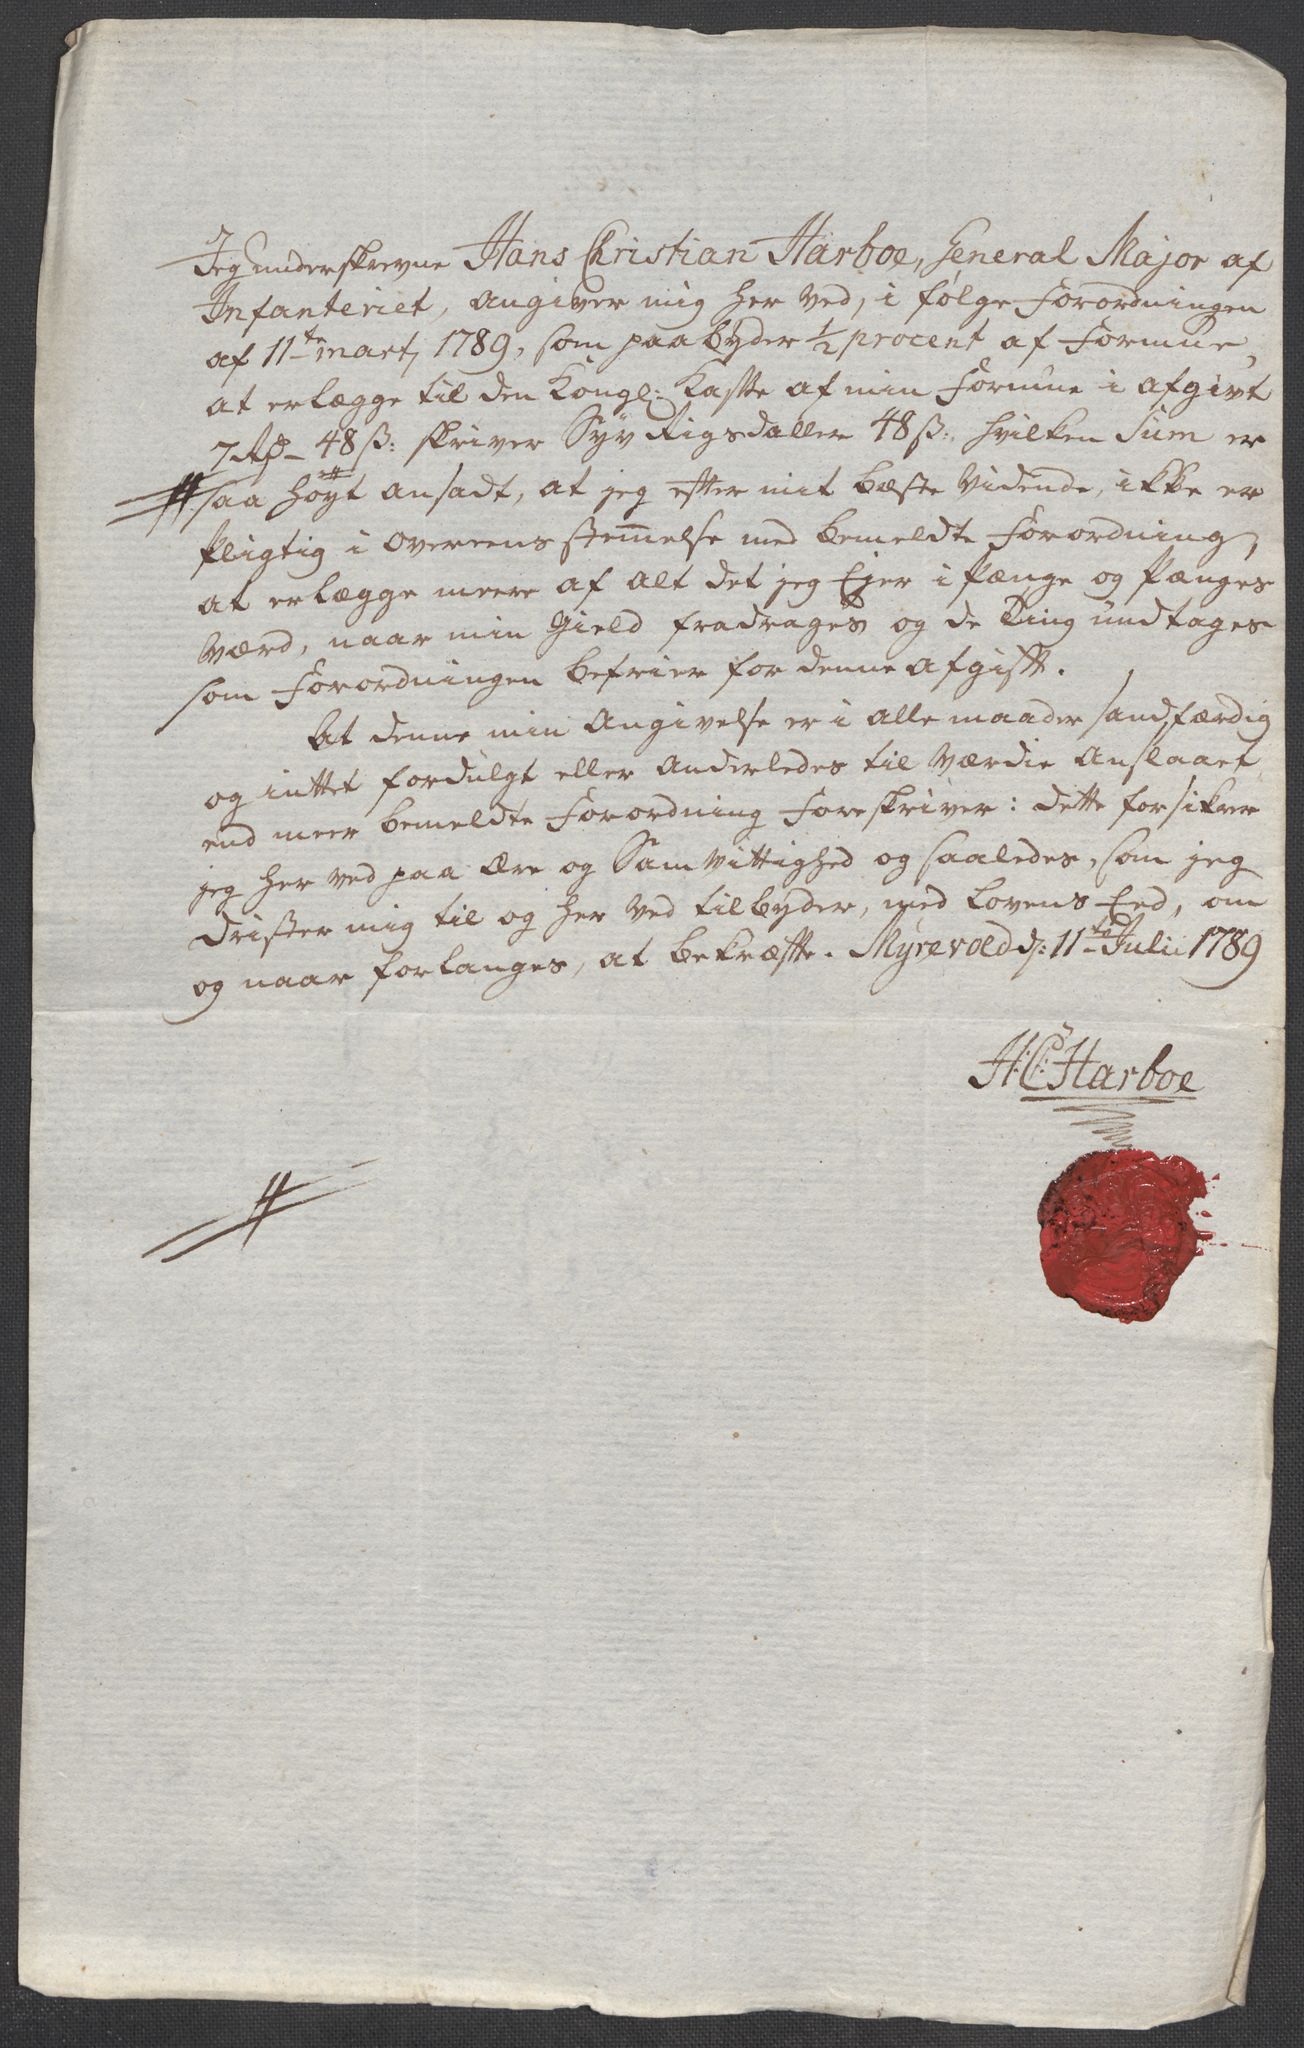 Jeg underskrevne Hans Christian Harboe, General Major af
Infanteriet, angiver mig her ved, i følge Forordningen
af 11te Martj 1789, som paabyder 1/2 procent af Formue,
at erlægge til den Kongl: Kasse af min Formue i afgivt
7 Rd – 48 ß: skriver Syv Rigsdaller 48 ß: hvilken Sum er
saa høyt ansadt, at jeg efter mit beste Vidende, ikke er
pligtig i overeensstemmelse med bemeldte Forordning,
at erlægge meere af alt det jeg Ejer i Penge og Penges
Værd, naar min Gield fradrages og de Ting undtages
som Forordningen befrier for denne afgift.
At denne min Angivelse er i alle maader sandfærdig
og inttet fordulgt eller anderledes til Værdie Anslaaet
end meer bemeldte Forordning Foreskriver: dette forsikrer
jeg her ved paa Ære og Samvittighed og saaledes, som jeg
drister mig til og her ved tilbyder, med Lovens Eed, om
og naar forlanges, at bekræfte. Myrevold d: 11te Julii 1789
H: C: Harboe